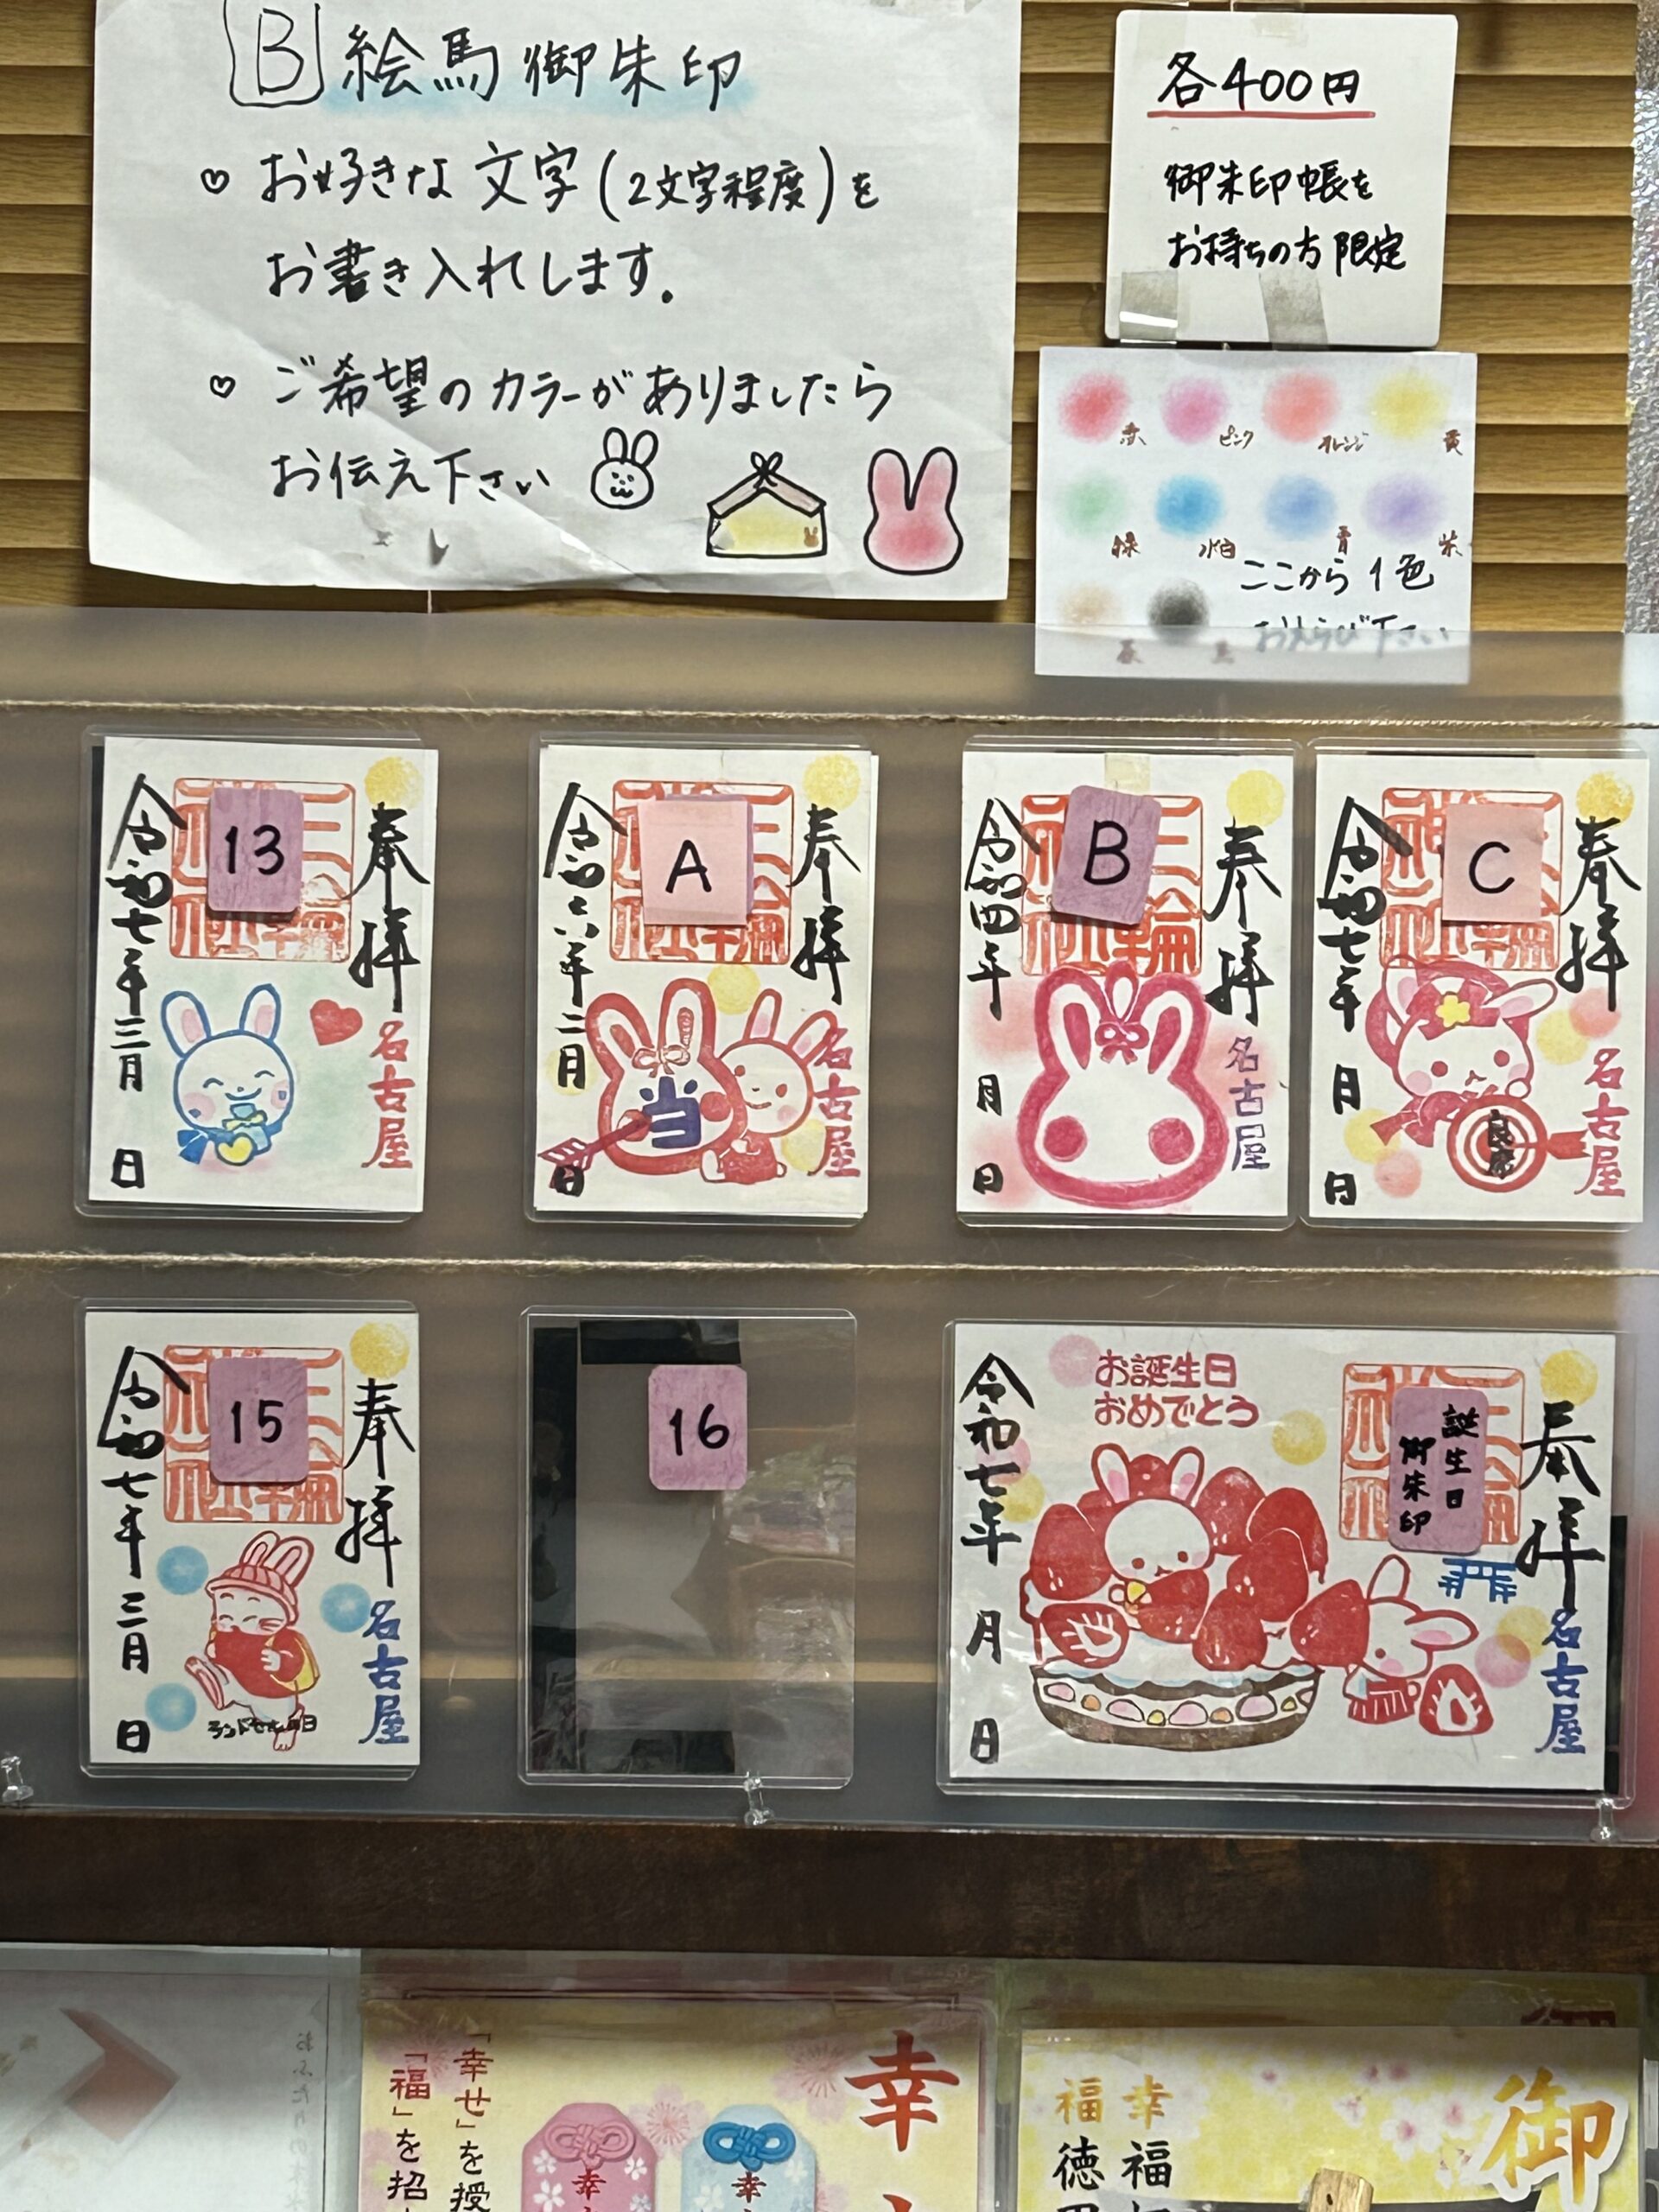 B 絵馬御朱印
♡ お好きな文字(2文字程度)を
お書き入れします。
♡ ご希望のカラーがありましたら
お伝え下さい
各400円
御朱印帳を
お持ちの方限定
赤 ピンク オレンジ 黄
緑 水白 青 紫
灰 黒
ここから1色
おえらび下さい
奉拝
13
名古屋
令和七年三月 日
奉拝
A
当
名古屋
令和六年二月 日
奉拝
B
三輪
名古屋
令和四年 月 日
奉拝
C
良縁
名古屋
令和七年 月 日
奉拝
15
名古屋
ランドセルの日
令和七年三月 日
16
奉拝
誕生日
御朱印
名古屋
お誕生日
おめでとう
令和七年 月 日
幸
「幸せ」を授
「福」を招
幸
幸
御
幸福
福徳